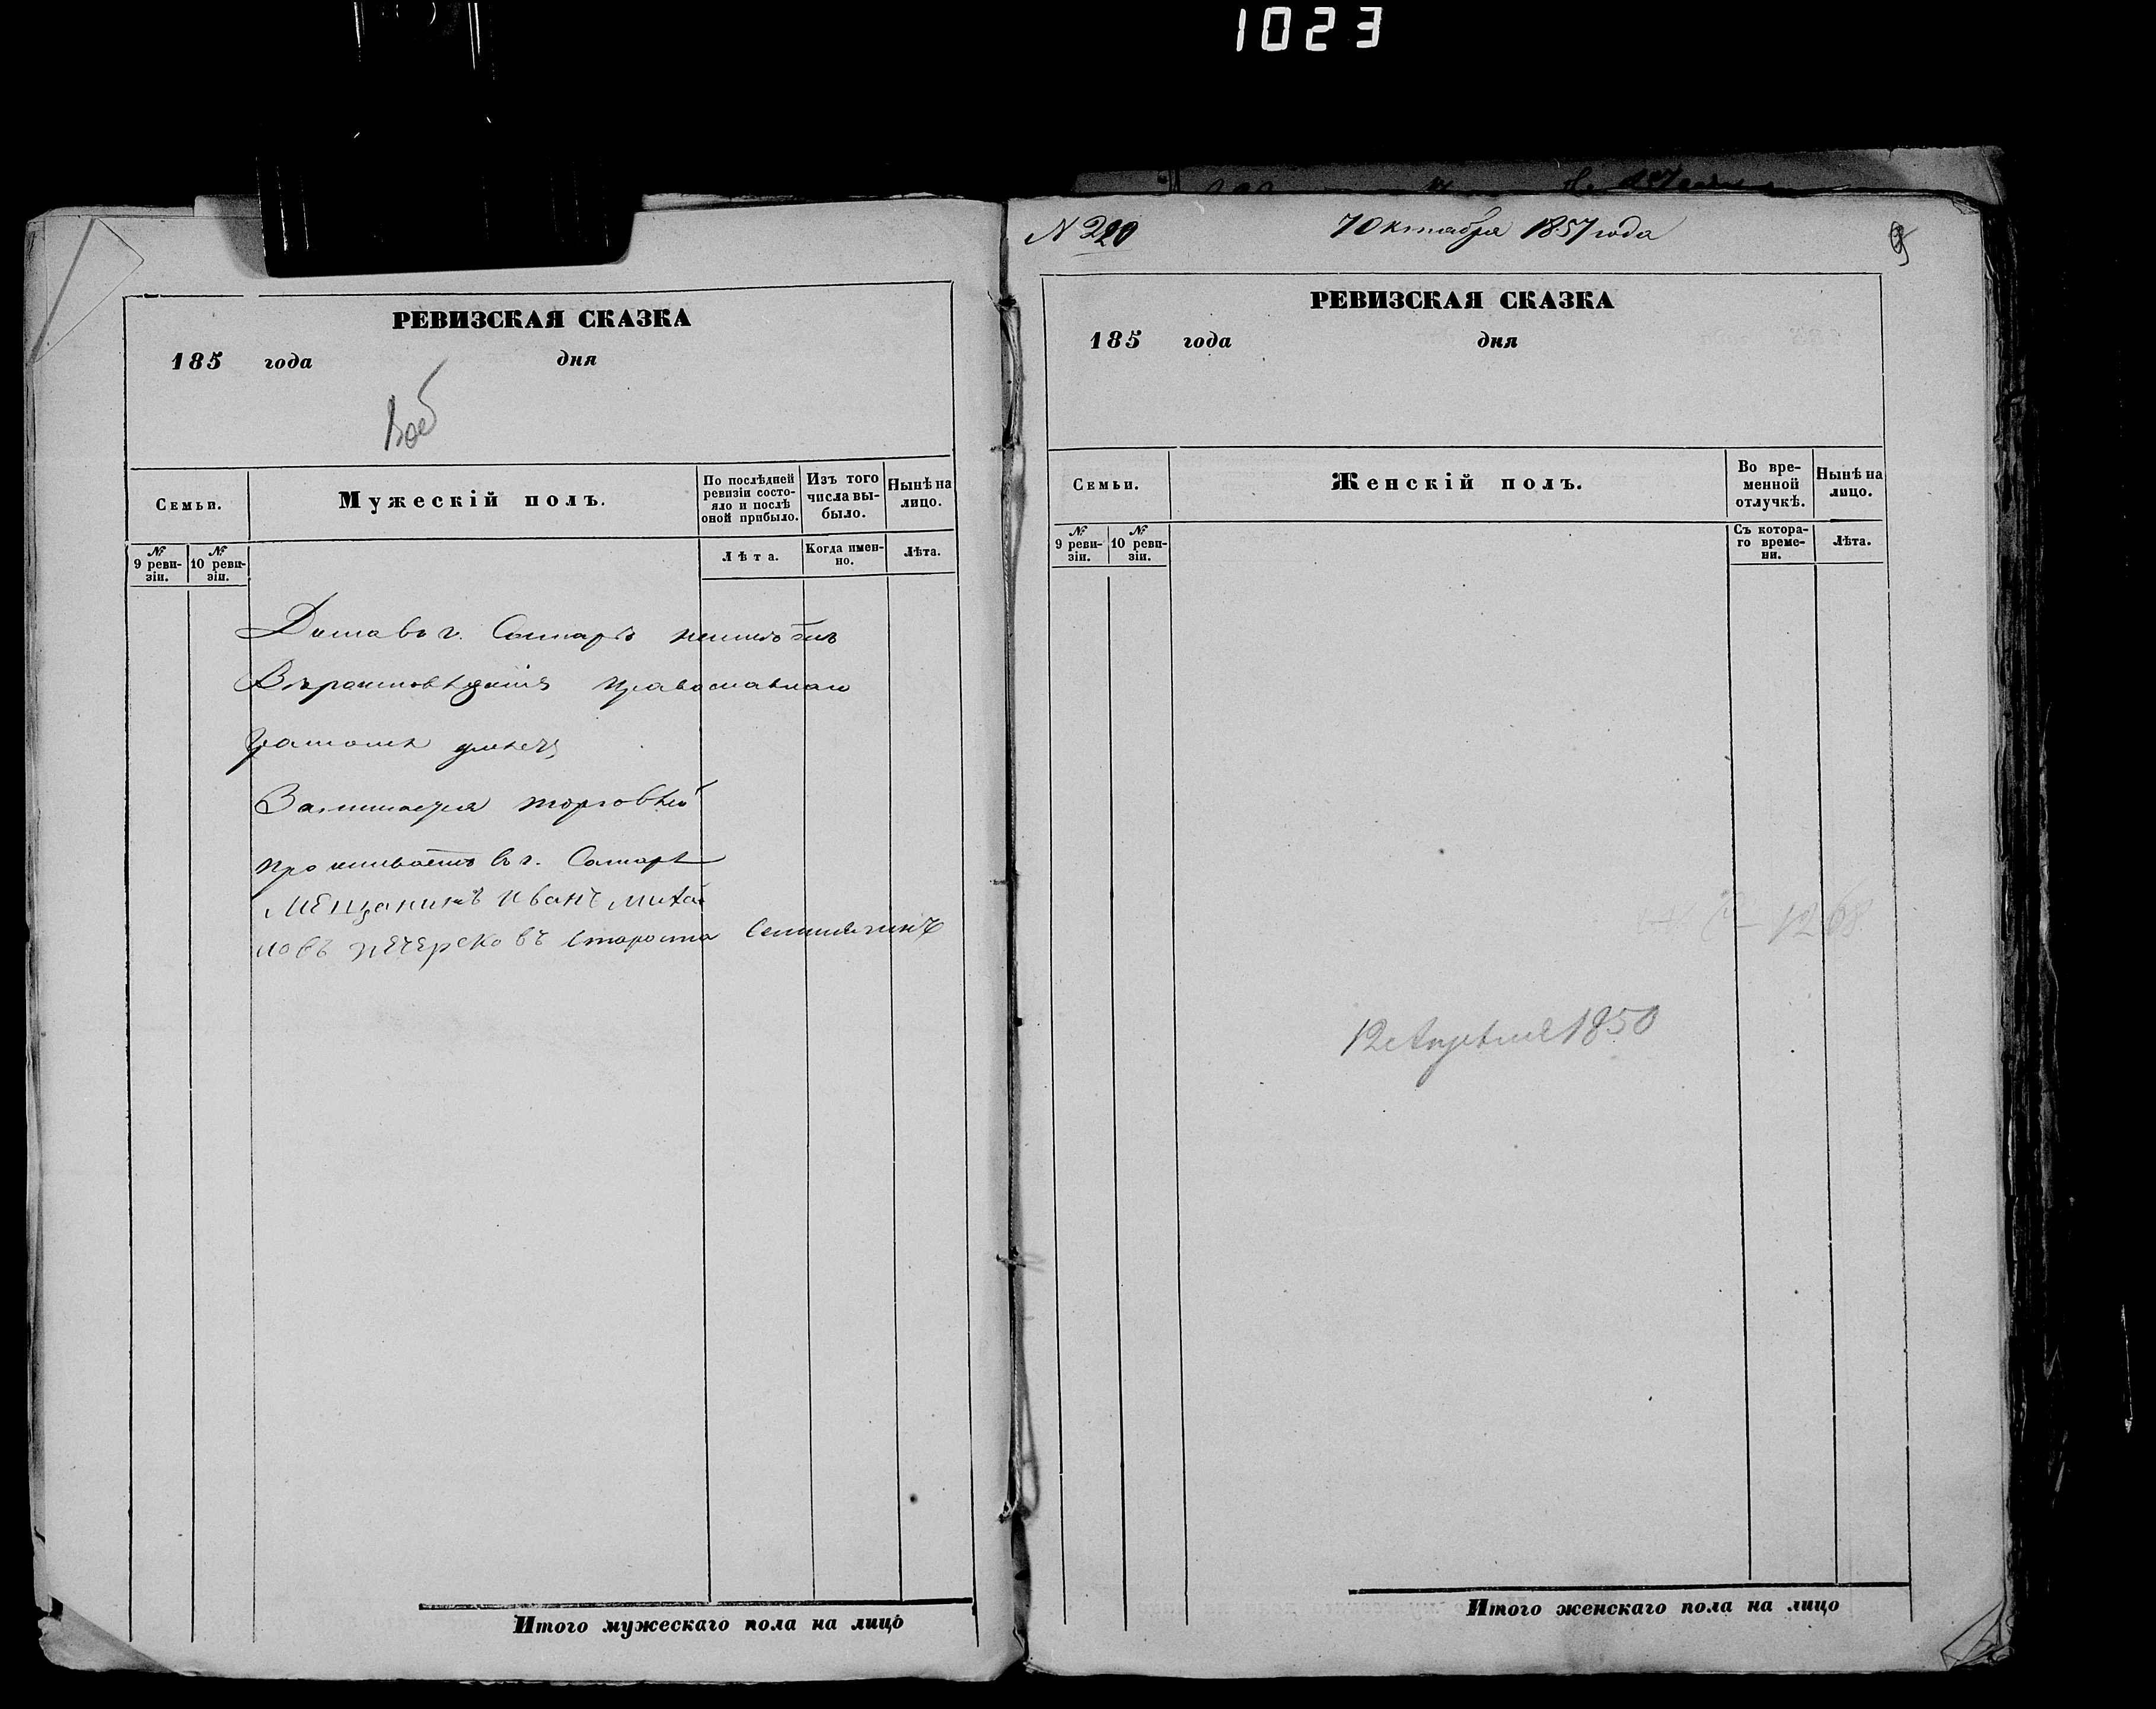 1023
РЕВИЗСКАЯ СКАЗКА
185 года дня
Семьи.
Мужескій полъ.
По послѣдней ревизіи состояло и послѣ оной прибыло.
Изъ того числа выбыло.
Нынѣ на лицо.
№ 9 ревизіи.
№ 10 ревизіи.
Лѣта.
Когда именно.
Лѣта.
Дома в г. Самарѣ
Вѣроисповѣданія православнаго
Грамотѣ умѣетъ
Занимается торговлей
проживаетъ в г. Самарѣ
Мещанинъ иванъ михай
ловъ печерсковъ староста
Итого мужескаго пола на лицо
N 220
7 Октября 1857 года
РЕВИЗСКАЯ СКАЗКА
185 года дня
Семьи.
Женскій полъ.
Во временной отлучкѣ.
Нынѣ на лицо.
№ 9 ревизіи.
№ 10 ревизіи.
Съ котораго времени.
Лѣта.
12 Апрѣля 1850
Итого женскаго пола на лицо